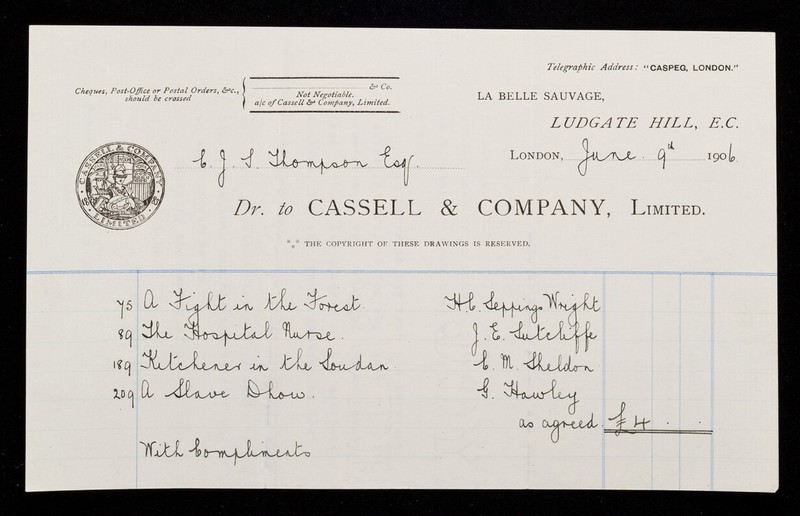 Telegraphic Address: "CASPEG, LONDON."
Cheques, Post-Office or Postal Orders, &c., should be crossed
& Co.
Not Negotiable.
a/c of Cassell & Company, Limited.
LA BELLE SAUVAGE,
LUDGATE HILL, E.C.
CASSELL & COMPANY LIMITED
C. J. S. Thompson Esq.
LONDON, June 9th 1906
Dr. to CASSELL & COMPANY, LIMITED.
THE COPYRIGHT OF THESE DRAWINGS IS RESERVED.
75 A Fight in the Forest H.C. Seppings Wright
89 The Hospital Nurse. J. E. Sutcliffe
189 Kitchener in the Soudan C. M. Sheldon
209 A Slave Dhow. G. Hawley
as agreed £4 . .
With Compliments